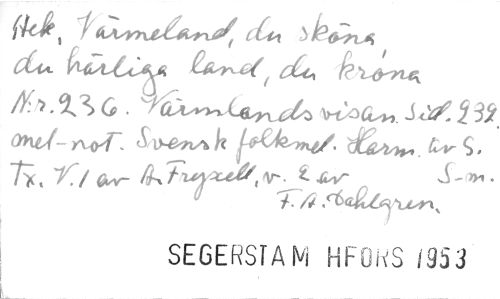 Hek, Värmeland, du sköna,
du härliga land, du kröna
N:r. 236. Värmlandsvisan. Sid. 232
mel-not. Svensk folkmel. Harm. av S.
Tx. V. 1 av A. Fryxell, v. 2 av S-m.
F. A. Dahlgren.
SEGERSTAM HFORS 1953